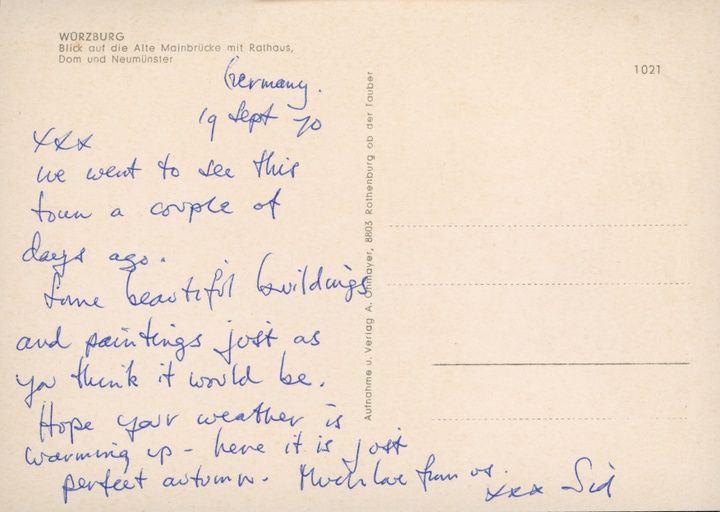 WÜRZBURG
Blick auf die Alte Mainbrücke mit Rathaus,
Dom und Neumünster
1021
Germany.
19 Sept 70
xxx
we went to see this
town a couple of
days ago.
Some beautiful buildings
and paintings just as
you think it would be.
Hope your weather is
warming up - here it is just
perfect autumn. Much love from us.
xxx Sid
Aufnahme u. Verlag A. Ohmayer, 8803 Rothenburg ob der Tauber